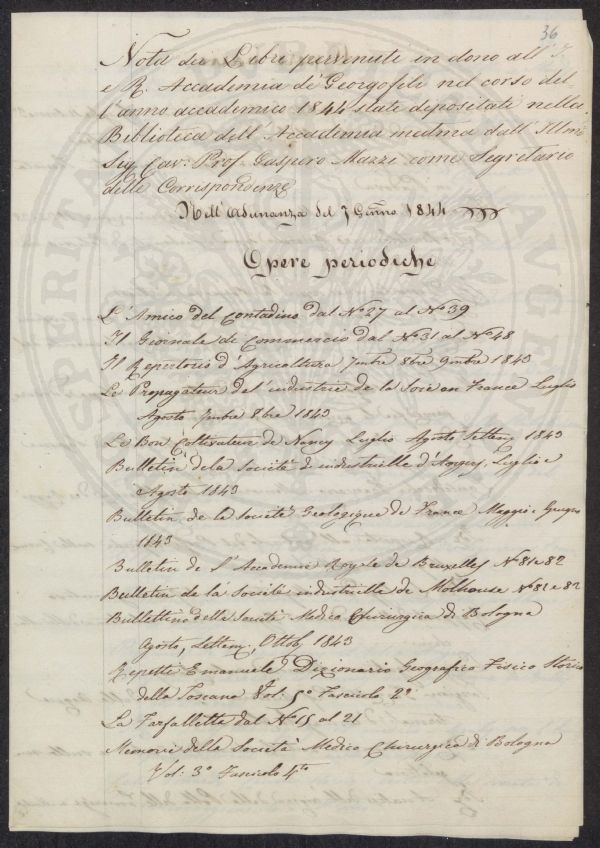 36
Nota dei Libri pervenuti in dono all' I.
e R. Accademia de' Georgofili nel corso del
l'anno accademico 1844 stati depositati nella
Biblioteca dell' Accademia medma dall' Illmo
Sig. Cav: Prof. Gaspero Mazzi come Segretario
delle Corrispondenze
Nell' Adunanza del 7 Genno 1844
Opere periodiche
L' Amico del Contadino dal No 27 al No 39
Il Giornale di Commercio dal No 31 al No 48
Il Repertorio d' Agricoltura 7mbre 8bre 9mbre 1843
Le Propagateur del' industrie de la Soie en France Luglio
Agosto 7mbre 8bre 1843
Le Bon Coltivateur de Nancy Luglio Agosto Settem 1843
Bulletin de la Société industrielle d' Angers, Luglio e
Agosto 1843
Bulletin de la Societé Geologique de France Maggio e Giugno
1843
Bulletin de l' Academie Royale de Bruxelles No 81 e 82
Bulletin de la Société industrielle de Molhouse No 81 e 82
Bullettino della Società Medico Chirurgica di Bologna
Agosto, Settem, Ottob, 1843
Repetti Emanuele Dizionario Geografico Fisico Storico
della Toscana Vol: 5o Fascicolo 2o
La Farfalletta dal No 15 al 21
Memorie della Società Medico Chirurgica di Bologna
Vol: 3o Fascicolo 4to